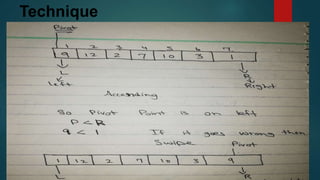 Technique
Pivot
1 2 3 4 5 6 7
9 12 2 7 10 3 1
L R
Left Right
Accending
So Pivot Point is on left
P < R
9 < 1 If it goes wrong then
Swipe Pivot
1 12 2 7 10 3 9
L R